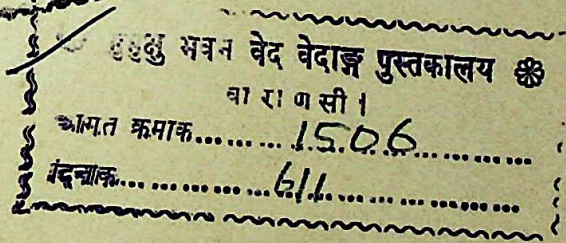 मुमुक्षु भवन वेद वेदाङ्ग पुस्तकालय
वा रा ण सी ।
आगत क्रमाक...... 1506 ............
दिनाक............... 611 ................